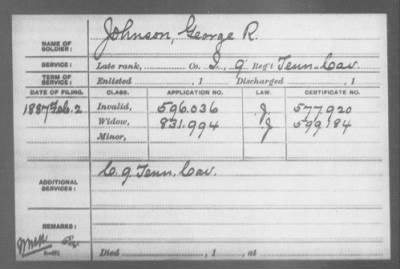 Johnson, George R.
NAME OF SOLDIER:
SERVICE: Late rank, Co. I, 9 Reg't Tenn. Cav.
TERM OF SERVICE: Enlisted , 1 Discharged , 1
DATE OF FILING. CLASS. APPLICATION NO. LAW. CERTIFICATE NO.
1887 Feb. 2 Invalid, 596.036 J 577920
Widow, 831.994 J 599184
Minor,
C. 9 Tenn. Cav.
ADDITIONAL SERVICES:
REMARKS:
Died , 1 , at